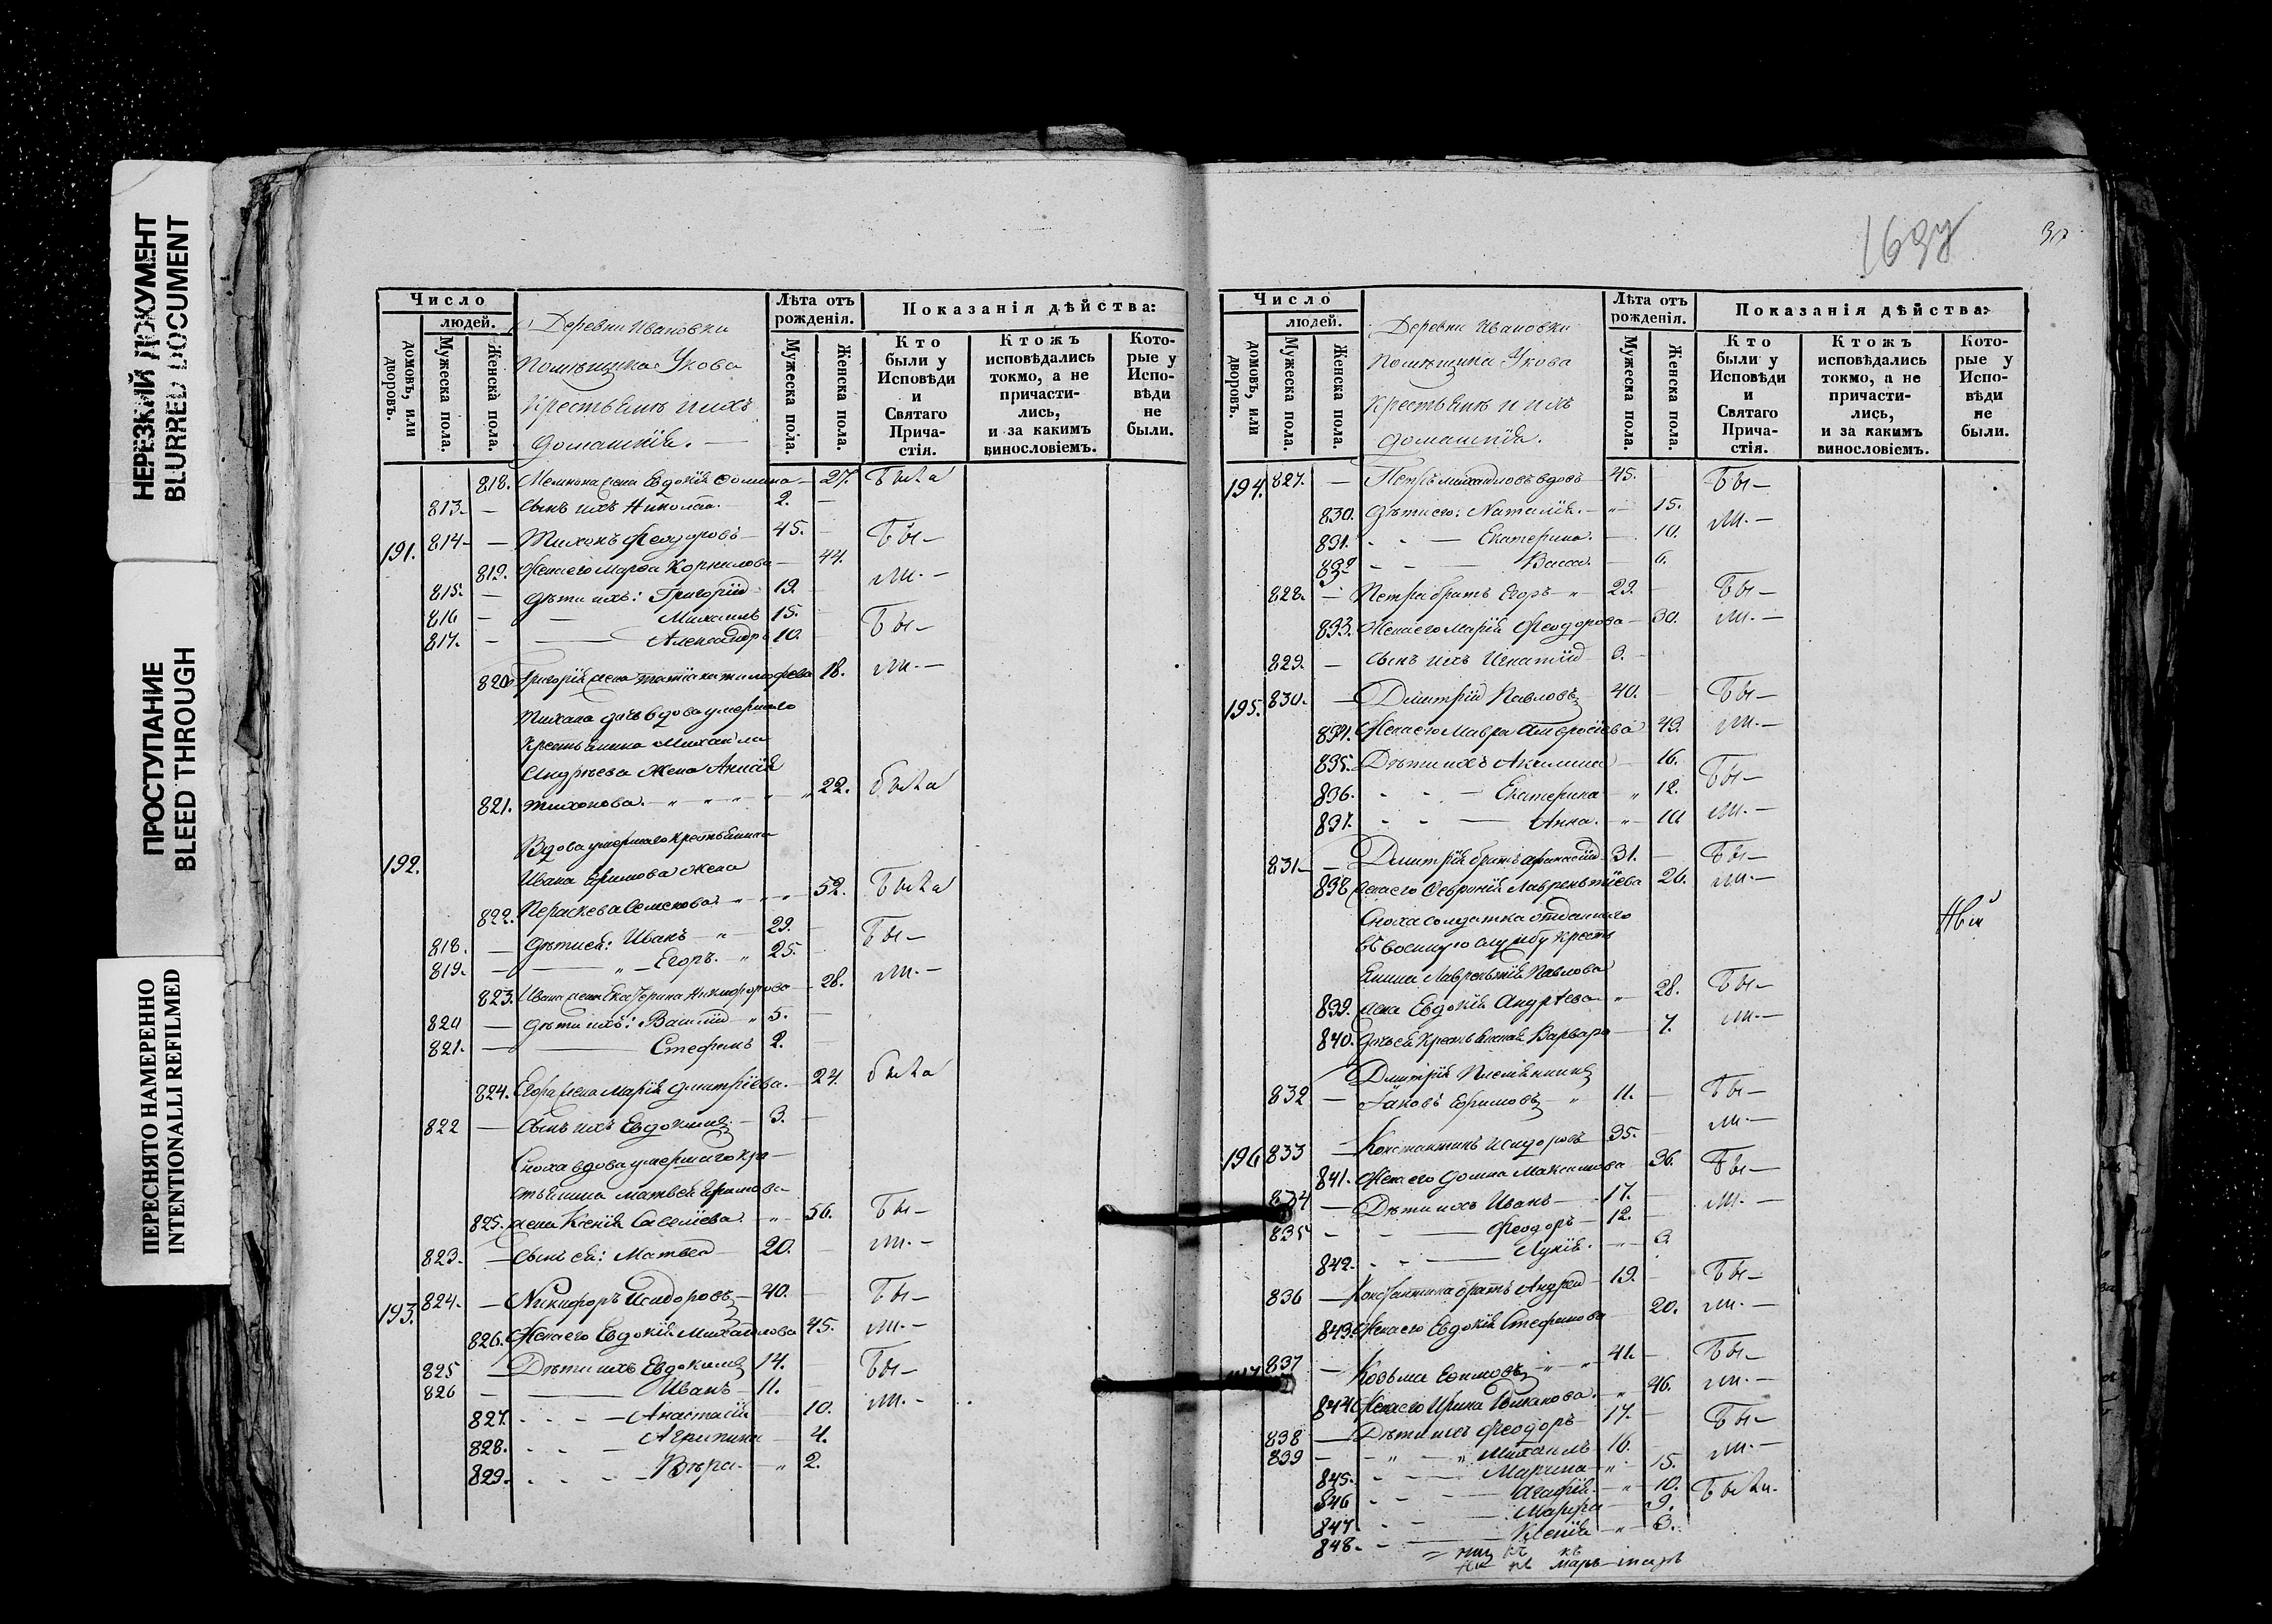 НЕРЕЗКИЙ ДОКУМЕНТ
BLURRED DOCUMENT
ПРОСТУПАНИЕ
BLEED THROUGH
ПЕРЕСНЯТО НАМЕРЕННО
INTENTIONALLI REFILMED
Число
людей.
домовъ, или дворовъ.
Мужеска пола.
Женска пола.
Деревни Ивановки
Помѣщика Укова
Крестьяне и ихъ
домашнія.
Лѣта отъ рожденія.
Мужеска пола.
Женска пола.
Показанія дѣйства:
Кто были у Исповѣди и Святаго Причастія.
Ктожъ исповѣдались токмо, а не причастились, и за какимъ винословіемъ.
Которые у Исповѣди не были.
818. жена Евдокія Фомина 27. Была
813. — Сынъ ихъ Николай. 2. —
191. 814 — Тихонъ Феодоровъ 45. — Бы—
819. Жена его Марфа Корнилова 44.
815. — Дѣти ихъ: Григорій 19. ли. —
816 — Михаилъ 15.
817. — Александръ 10. Бы—
820 Григорія жена Татіана Тимофеева 18. ли. —
Тихона дочь вдова умершаго
крестьянина Михаила
Андреева жена Анисія
821. Тихонова. 22. была
192. Вдова умершаго крестьянина
Ивана Ефимова жена
822. Параскева Семенова. 52. Была
818. — Дѣти ей: Иванъ 29. Бы—
819. — Егоръ. 25.
823. Ивана жена Екатерина Никифорова 28. ли. —
820 — Дѣти ихъ: Василій 5.
821. — Стефанъ 2.
824. Егора жена Марія Дмитріева. 24. была
822 — Сынъ ихъ Евдокимъ 3.
Сноха вдова умершаго кре—
стьянина Матвея Ефимова
825. жена Ксенія Савеліева. 56. Бы—
823. — Сынъ ей: Матвей 20. ли. —
193. 824. — Никифоръ Исидоровъ 40. Бы—
826. Жена его Евдокія Михайлова 45. ли. —
825 — Дѣти ихъ Евдокимъ 14. Бы—
826 — Иванъ 11.
827. Анастасія 10. ли. —
828. Агрипина 4.
829. Вѣра. 2.
Число
людей.
домовъ, или дворовъ.
Мужеска пола.
Женска пола.
Деревни Ивановки
Помѣщика Укова
Крестьяне и ихъ
домашнія.
Лѣта отъ рожденія.
Мужеска пола.
Женска пола.
Показанія дѣйства:
Кто были у Исповѣди и Святаго Причастія.
Ктожъ исповѣдались токмо, а не причастились, и за какимъ винословіемъ.
Которые у Исповѣди не были.
194. 827. — Петръ Михайловъ вдовъ 45. Бы—
830. Дѣти его: Наталія. 15.
831. Екатерина. 10. ли. —
832 Васса. 6.
828. — Петра братъ Егоръ 29. Бы—
833. Жена его Марія Феодорова 30. ли. —
829. — Сынъ ихъ Игнатій 3.
195. 830. — Дмитрій Павловъ 40. Бы—
834. Жена его Мавра Амвросіева 43. ли. —
835. Дѣти ихъ Акилина 16.
836. Екатерина 12. Бы—
837. Анна. 10 ли. —
831 — Дмитрія братъ Афанасій 31. Бы—
838 жена его Феронія Лаврентіева 26. ли. —
Сноха солдатка отданнаго
въ военную службу кресть
янина Лаврентія Павлова
839. жена Евдокія Андреева 28. Бы—
840. Дочь ей крестьянская Варвара 7. ли. —
Дмитрія племянникъ
832 — Іаковъ Ефимовъ 11. Бы—
ли. —
196 833 — Константинъ Исидоровъ 35.
841. Жена его Домна Максимова 36. Бы—
834 — Дѣти ихъ Иванъ 17.
835 — Феодоръ 12. ли. —
842. Лукія. 3
836 — Константина братъ Андрей 19. Бы—
843. Жена его Евдокія Стефанова 20. ли. —
837 — Козьма Ефимовъ 41. Бы—
844. Жена его Ирина Романова. 46. ли. —
838 — Дѣти ихъ Феодоръ 17. Бы—
839 — Михаилъ 16.
845. Марина 15. ли. —
846 Агафія 10. Были.
847. Марфа 9.
848. Ксенія 3.